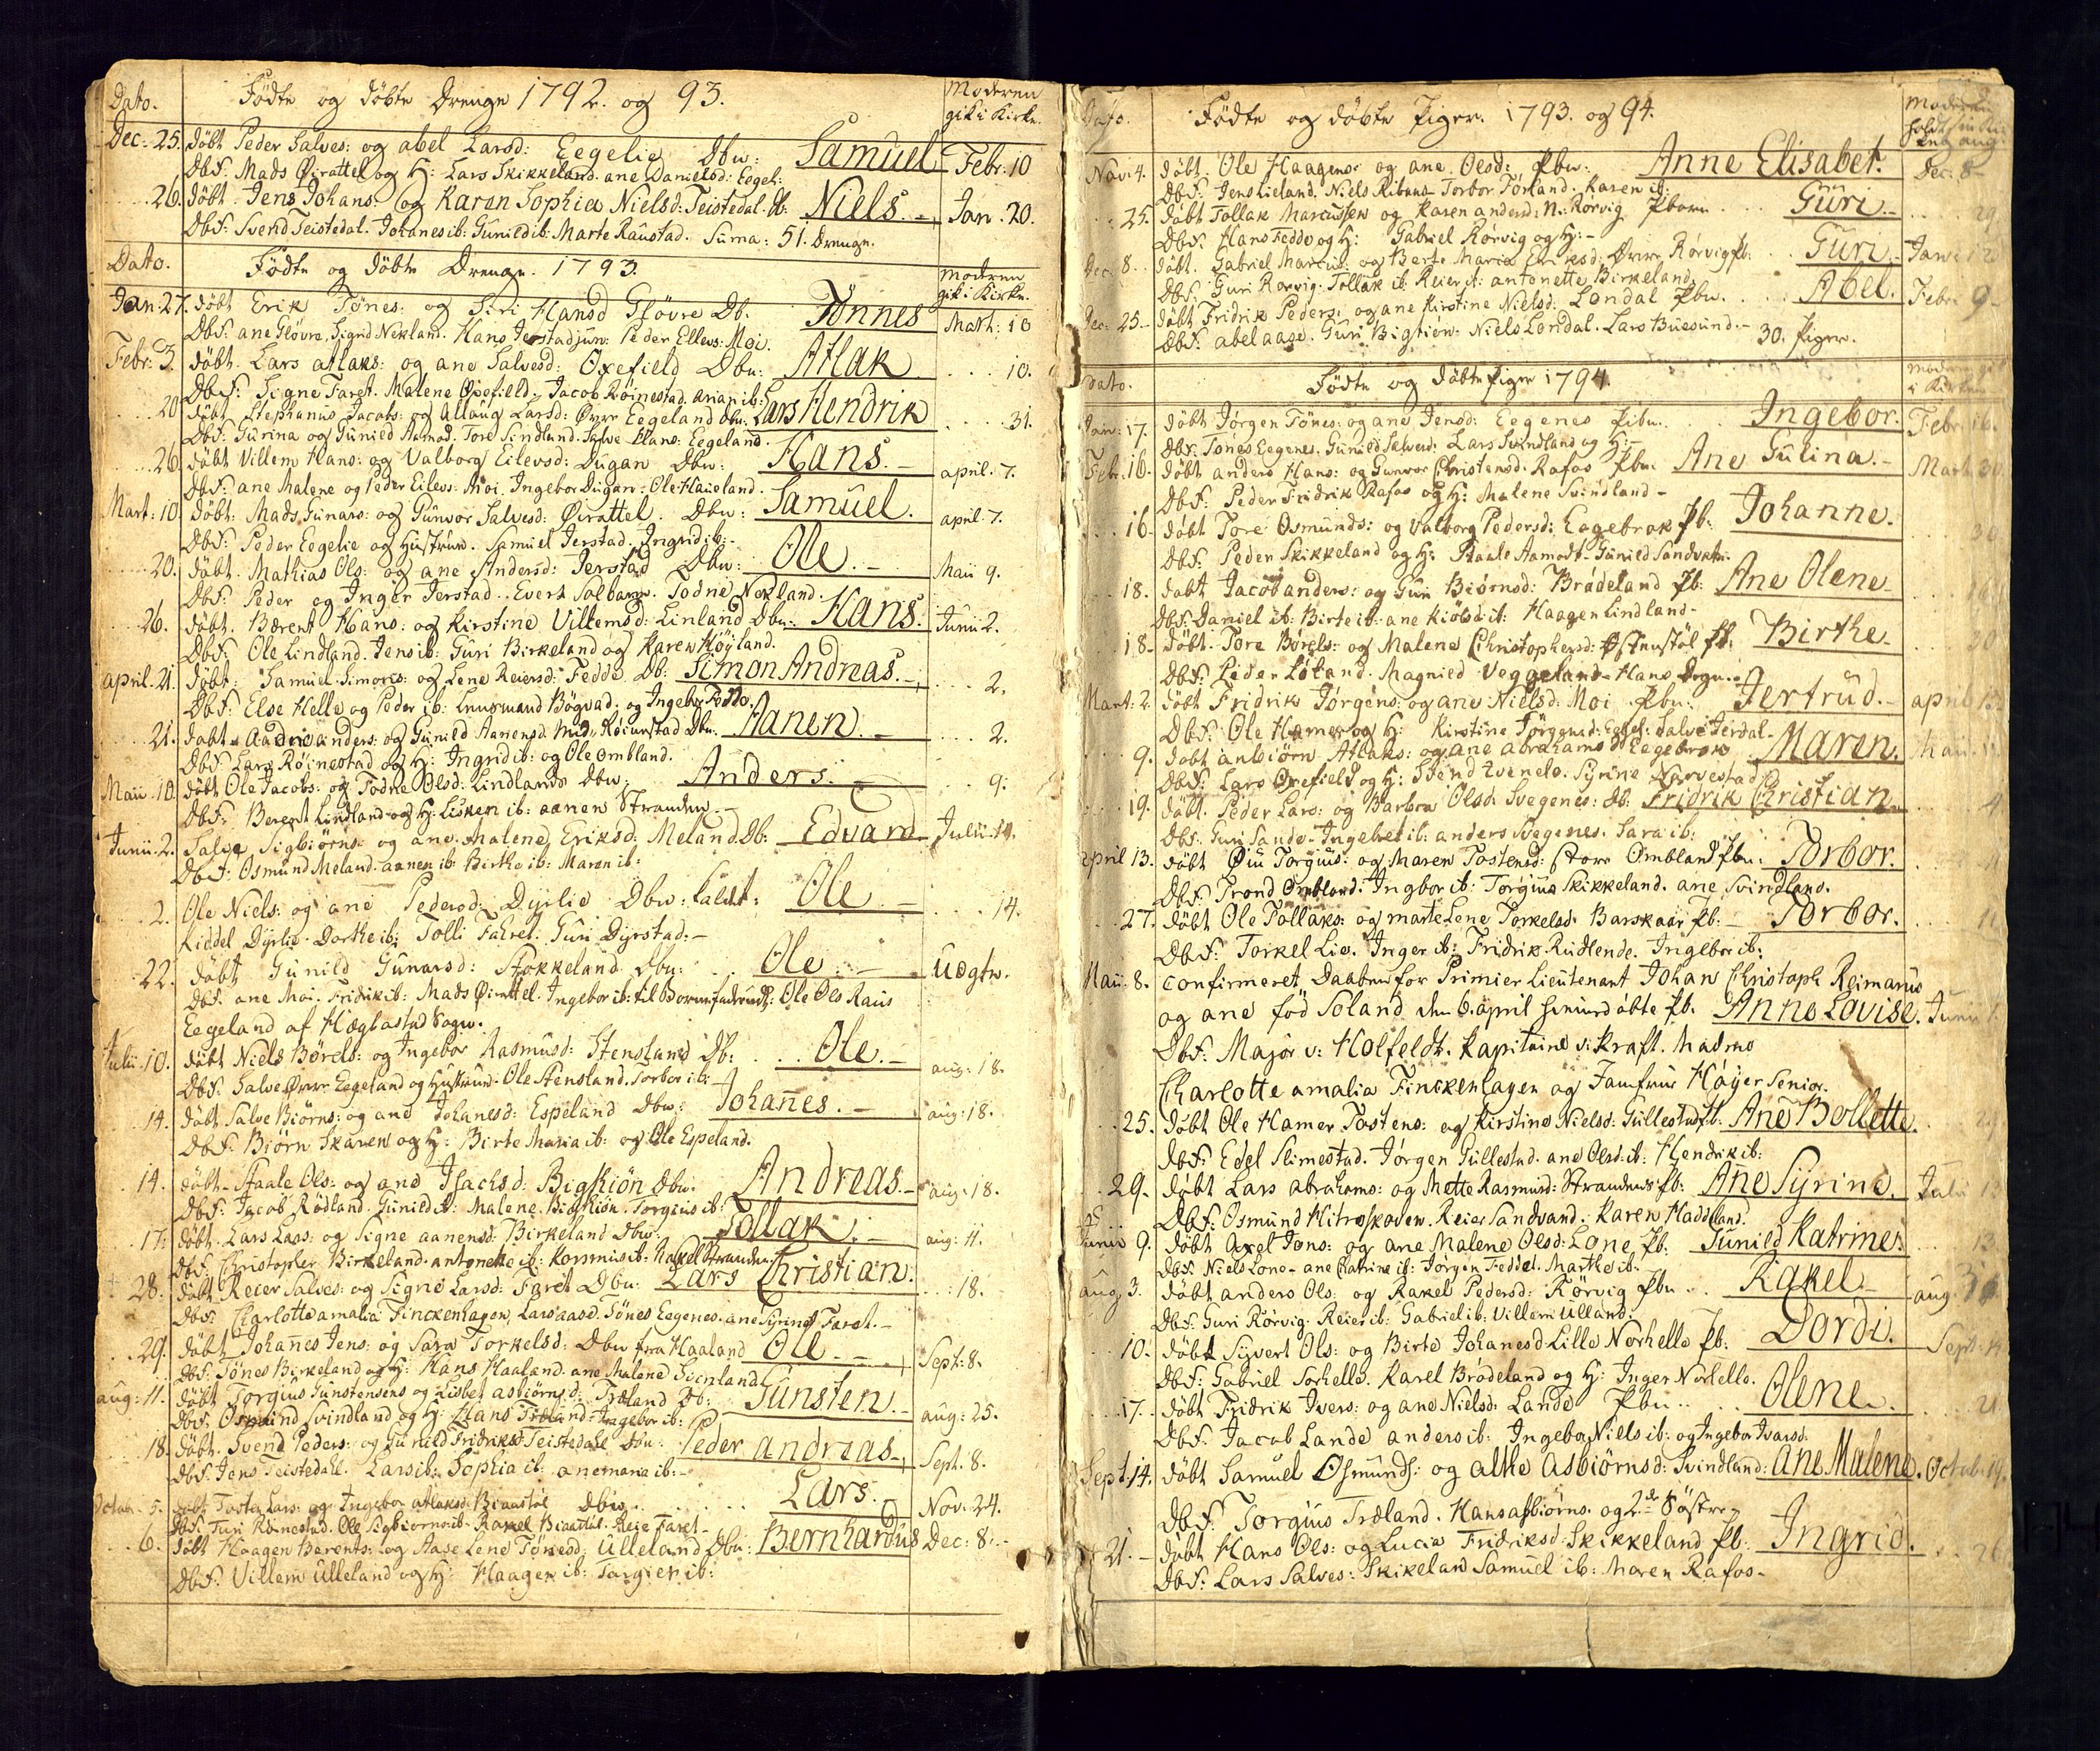 Dato. Födte og döbte Drenge 1792. og 93. Moderen
gik i Kirke.
Dec: 25. döbt Peder Salves: og abel Larsd: Eegelie Dbn: Samuel Febr: 10
DbF: Mads Øirattel og H: Lars Skikkeland. ane Danielsd: Eegel:
26. döbt Jens Johans: og Karen Sophia Nielsd: Teistedal. Db: Niels. Jan. 20.
DbF: Svend Teistedal. Johanes ib: Gunild ib: Marte Raustad. Suma: 51. Drenge.
Dato. Födte og döbte Drenge. 1793. moderen
gik i Kirke.
Jan: 27. döbt Erik Tönes: og Siri Hansd Glövre Db. Tönnes Mart: 10
DbF: ane Glövre, Sigrid Nekland. Hans Jerstad jun: Peder Ellevs: Moi.
Febr: 3. döbt. Lars atlaks: og ane Salvesd: Oxefield Dbn: Atlak 10.
DbF: Signe Faret. Malene Oxefield. Jacob Röinestad. arian ib:
20 döbt Stephanus Jacobs: og allaug Larsd: Øvre Eegeland Dbn: Lars Hendrik 31.
DbF: Gurina og Gunild Aamod. Tore Sindland. Salve Hans: Eegeland.
26 döbt Villem Hans: og Valborg Eilevsd: Dugan Dbn: Hans. april. 7.
DbF: ane Malene og Peder Eilevs: Moi. Ingebor Dugan: Ole Haueland.
Mart: 10 döbt: Mads Gunars: og Gunvor Salvesd: Øirattel. Dbn: Samuel. april. 7.
DbF: Peder Eegelie og Hustrue. Samuel Jerstad. Ingrid ib:
20. döbt. Mathias Ols: og ane Andersd: Jerstad Dbn: Ole. Maii 9.
DbF: Peder og Inger Jerstad. Evert Solbarg. Todne Nekland.
26. döbt. Bærent Hans: og Kirstine Villemsd: Linland Dbn: Hans. Junii 2.
DbF. Ole Lindland. Jens ib: Guri Birkeland og Karen Höyland.
april. 21. döbt: Samuel Simons: og Lene Reiersd: Fedde Db: Simon Andreas. 2.
DbF: Else Helle og Peder ib: Lensmand Bögvad: og Ingebor Fedde.
21. döbt anders: og Gunild Aanensd: Röiunstad Dbn. Aanen. 2.
DbF: Lars Röinestad og H: Ingrid ib: og Ole ombland.
Maii 10. döbt Ole Jacobs: og Todne Olsd: Lindland Dbn: Anders. 9.
DbF: Berent Lindland og H: Lisken ib: aanen Stranden.
Junii. 2. Salve Sigbiörns: og ane Malene Eriksd: Meland. Db: Edvard Julii. 14.
DbF: Osmund Meland. aanen ib: Birthe ib: Maren ib:
2. Ole Niels: og ane Pedersd: Dyrlie Dbn: kaldt: Ole 14.
Kiddel Dyrlie. Dorthe ib: Tolli Fahret. Guri Dyrstad.
22. döbt Gunild Gunarsd: Stokkeland Dbn: Ole Uægte.
DbF. ane Moi. Fridrik ib: Mads Øirattel. Ingebor ib: til Barnefader: Ole Ols Raus
Eegeland af Hægbastad Sogn.
Julii. 10. döbt Niels Börels: og Ingebor Rasmusd: Stensland Db: Ole. aug: 18.
DbF: Salve Øvre Eegeland og Hustrue. Ole Stensland. Torbor ib:
14. döbt Salve Biörns: og ane Johanesd: Espeland Dbn: Johañes. aug: 18.
DbF: Biörn Skaren og H: Birte Maria ib: og Ole Espeland.
14. döbt Staale Ols: og ane Isachsd: Bigkiön Dbn: Andreas. aug: 18.
DbF: Jacob Rödland. Gunild ib: Malene Bigkiön. Torgius ib:
17. döbt. Lars Lars: og Signe aanensd: Birkeland Dbn: Tollak. aug: 11.
DbF. Christopher Birkeland. antonette ib: Rasmus ib: Rakel Stranden.
28. döbt. Reier Salves: og Signe Larsd: Faret Dbn: Lars Christian. 18.
DbF: Charlotte amalia Finckenhagen, Lars aase. Tönes Eegenes. ane Syrine Faret.
29. döbt Johañes Jens: og Sara Torkelsd: Dbn fra Haaland Ole Sept: 8.
DbF: Tönes Birkeland og H: Hans Haaland. ane Malene Svinland.
aug: 11. döbt Torgius Gunstensens og Lisbet asbiörnsd: Træland Db: Gunsten. aug: 25.
DbF. Osmund Svindland og H: Hans Træland. Ingebor ib:
18. döbt. Svend Peders: og Gunild Fridriksd Teistedahl Dbn: Peder andreas. Sept. 8.
DbF. Jens Teistedahl. Lars ib: Sophia ib: ane maria ib:
Octobr. 5. döbt Tosten Lars: og Ingebor atlaksd: Biaastöl dbn. Lars. Nov: 24.
DbF: Guri Röinestad. Ole Sigbiorns ib. Rakel Biaastöl. Reie Faret
6. döbt Haagen Barents: og Aase Lene Tönesd: Ulleland Dbn: Bernhardus Dec: 8.
DbF: Villem Ulleland og H: Haagen ib: Targier ib:
Dato. Födte og döbte Piger. 1793. og 94.
Nov: 4. döbt. Ole Haagens: og ane Olsd: Pbn: Anne Elisabet. Dec: 8
DbF: Jens Lieland. Niels Ribans Torbor Förland. Karen ib:
25. döbt Tollak Marcussen og Karen andersd: N: Rörvig Pbarn Guri. 29.
DbF: Hans Fedde og H: Gabriel Rörvig og H:
Dec: 8. döbt. Gabriel Marcus: og Berte Maria Eriksd: Øvre Rörvig Pb: Guri Jan: 12
DbF: Guri Rörvig. Tollak ib: Reier ib: antonette Birkeland.
Dec: 25 döbt Fridrik Peders: og ane Kirstine Nielsd: Londal Pbn. Abel. Febr. 9
DbF: abel aase. Guri Bigtien. Niels Londal. Lars Buesund. 30. Piger.
Dato. Födte og döbte Piger 1794. moderen gik
i Kirken
Jan: 17. döbt Jörgen Tönes: og ane Jensd: Eegenes Pibn. Ingebor. Febr: 16.
DbF: Tönes Eegenes. Gunild Salvesd: Lars Svindland og H:
Febr: 16. döbt anders Hans: og Gunvor Christensd. Rafos Pbn. Ane Gulina. Mart: 30
DbF: Peder Fridrik Rafos og H: Malene Svindland
16. döbt Tore Osmunds: og Valborg Pedersd: Eegebrok Pb: Johanne. 30
DbF: Peder Skikkeland og H: Staale Aamodt. Gunild Sandvatn.
18. döbt Jacob anders: og Guri Biörnsd: Brödeland Pb: Ane Olene 16
DbF. Daniel ib: Birte ib: ane Kiölsd ib: Haagen Lindland.
18. döbt. Tore Börels: og Malene Christophersd: Østenstöl Pb: Birthe 30
DbF: Peder Lölan d. Magnild Veggeland. Hans Degn.
Mart: 2. döbt Fridrik Jörgens: og ane Nielsd: Moi Pbn: Jertrud. april 13
DbF. Ole Hamer og H: Kirstine Jörgensd: Salve Jerdal.
9. döbt anbiörn Atlaks: og ane abrahamsd Eegebrok Maren. Maii.
DbF: Lars Oxefield og H: Svend Evenels. Syrine Narvestad.
19. döbt. Peder Lars: og Barbra Olsd. Svegenes: Db: Fridrik Christian 4
DbF: Guri Sande. Ingebret ib: anders Svegenes. Sara ib:
april 13. döbt Øiu Torgius: og Maren Tostensd: Store Ombland Pbn: Torbor.
DbF: Trond Ombland. Ingbor ib: Torgius Skikkeland. ane Svindland.
27. döbt Ole Tollaks: og marte Lene Torkelsd: Barskaar Pb: Torbor. 11
DbF: Torkel Lie. Inger ib: Fridrik Rudlende. Ingebor ib:
Maii. 8. confirmeret Daaben for Primier Lieutenant Johan Christoph Reimarus
og ane föd Soland den 6. april hiemmedöbte Pb. Anne Lovise. Junii 1.
DbF: Major v: Holfeldt. Kapitaine v: Kraft. Madme
Charlotte amalia Finckenhagen og Jomfrue Höyer Senior.
25. döbt Ole Hamer Tostens: og Kirstine Nielsd: Gullestad Pb: Ane Bollette. 29
DbF: Edel Slimestad. Jörgen Gullestad. ane Olsd: ib: Hendrik ib:
29. döbt Lars abrahams: og Mette Rasmusd: Strandens Pb: Ane Syrine. Julii 13
DbF: Osmund Hitroskoven. Reier Sandvand. Karen Haddeland.
Junii 9. döbt Axel Jons: og ane Malene Olsd: Lone Pb: Gunild Katrine. 13
DbF. Niels Lone. ane Chatrine ib: Jörgen Feddel. Marthe ib:
aug 3. döbt anders Ols: og Rakel Pedersd: Rörvig Pbn Rakel aug
DbF. Guri Rörvig. Reier ib: Gabriel ib: Villem Ulland.
10. döbt Syvert Ols: og Birte Johanesd Lille Norhelle Pb: Dordi. Sept: 14
DbF: Gabriel Sorhelle. Karel Brödeland og H: Inger Norhelle.
17. döbt Fridrik Ivers: og ane Nielsd: Lande Pbn. Olene. 21
DbF. Jacob Lande anders ib: Ingebor Niels ib: og Ingebor Ivarsd.
Sept. 14. döbt Samuel Osmunds: og altke Asbiörnsd: Svindland: Ane Malene. Octob: 19.
DbF: Torgius Træland. Hans asbiörns. og 2de Söstre.
21. döbt Hans Ols: og Lucia Fridriksd: Skikkeland Pb: Ingrid. 26
DbF: Lars Salves: Skikeland Samuel ib: Maren Rafos.